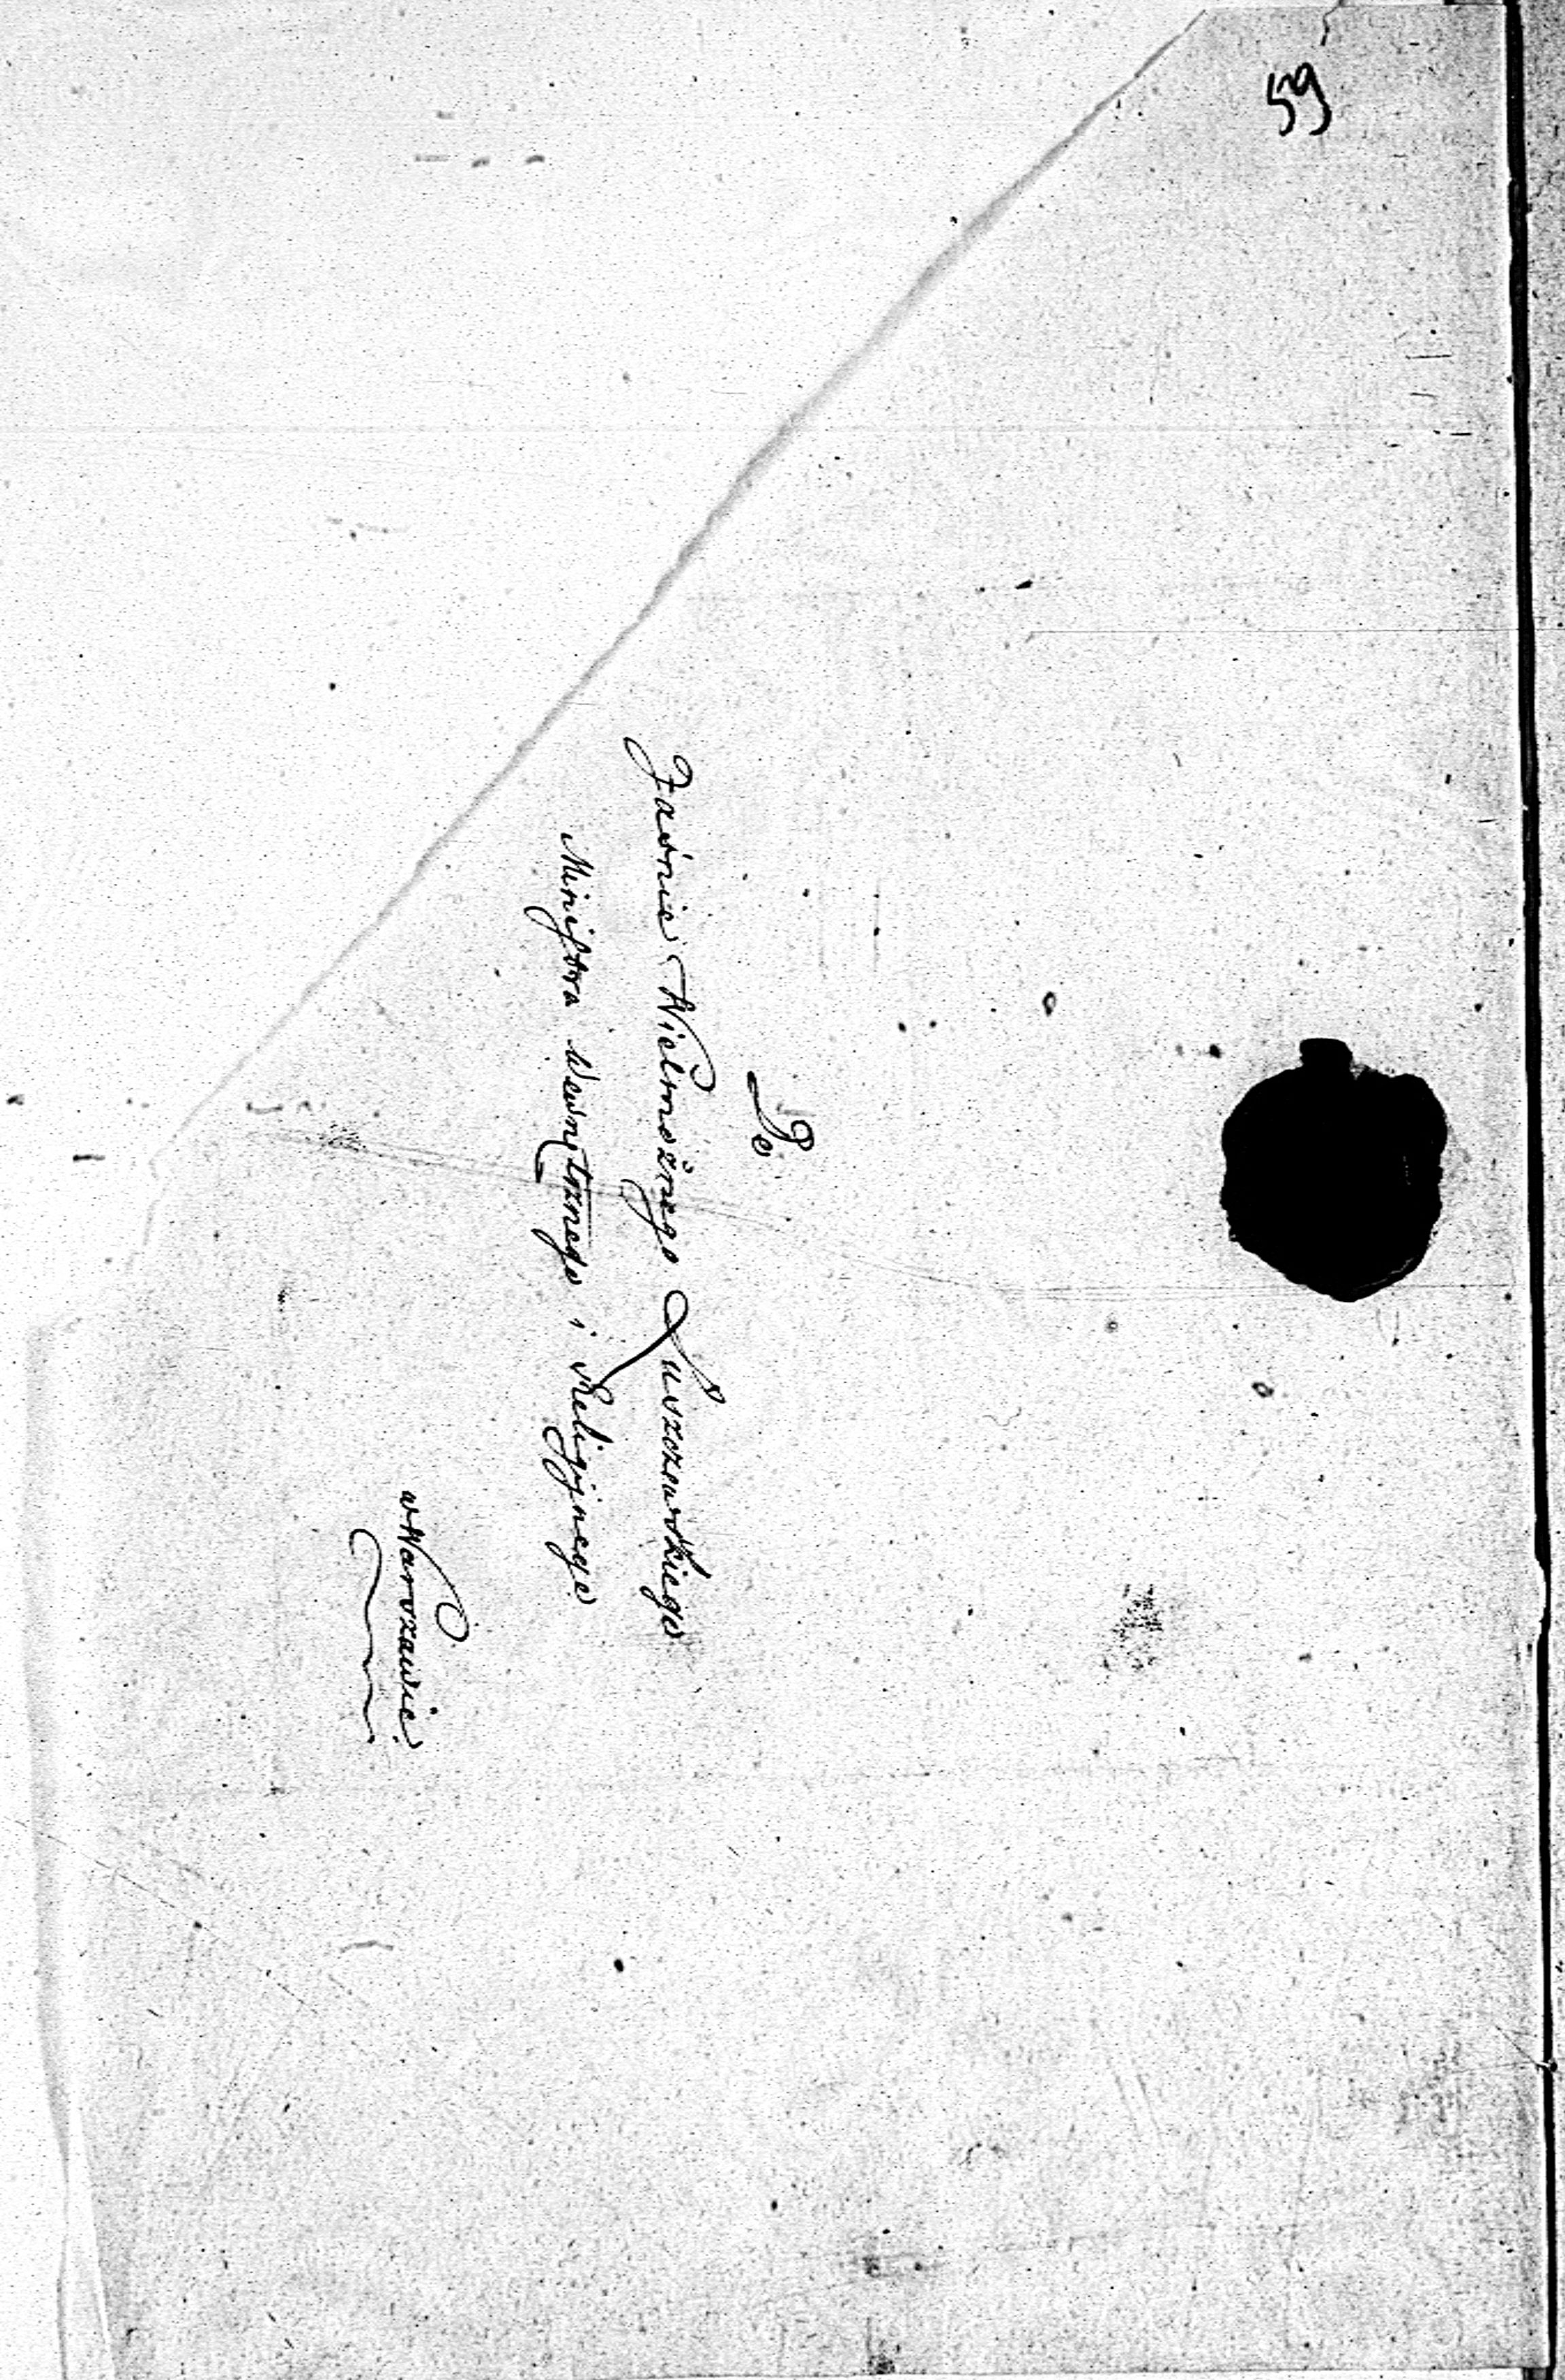 59
Do
Jaśnie Wielmożnego Łuszczewskiego
Ministra Wewnętrznego i Religijnego
w Warszawie